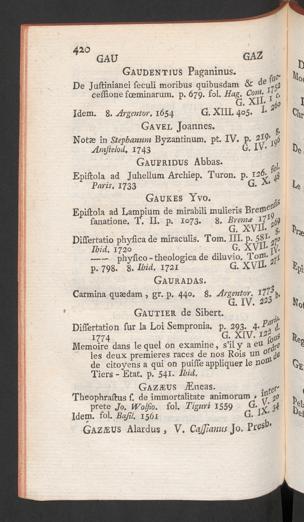 420
GAU GAZ
GAUDENTIUS Paganinus.
De Justinianei seculi moribus quibusdam & de suc-
cessione fœminarum. p. 679. fol. Hag. Com. 1752
G. XII. 1
Idem. 8. Argentor. 1654 G. XIII. 405. I. 260
GAVEL Joannes.
Notæ in Stephanum Byzantinum. pt. IV. p. 219. 8.
Amstelod. 1743 G. IV. 196
GAUFRIDUS Abbas.
Epistola ad Juhellum Archiep. Turon. p. 126. fol.
Paris. 1733 G. X. 48
GAUKES Yvo.
Epistola ad Lampium de mirabili mulieris Bremensis
sanatione. T. II. p. 1073. 8. Bremæ 1719
G. XVII. 269
Dissertatio physica de miraculis. Tom. III. p. 581. 8.
Ibid. 1720 G. XVII. 270
—— physico-theologica de diluvio. Tom. IV.
p. 798. 8. Ibid. 1721 G. XVII. 271
GAURADAS.
Carmina quædam, gr. p. 440. 8. Argentor. 1773
G. IV. 223 b.
GAUTIER de Sibert.
Dissertation sur la Loi Sempronia. p. 293. 4. Paris.
1774 G. XIV. 122 d.
Memoire dans le quel on examine, s'il y a eu sous
les deux premieres races de nos Rois un ordre
de citoyens a qui on puisse appliquer le nom de
Tiers-Etat. p. 541. Ibid.
GAZÆUS Æneas.
Theophrastus s. de immortalitate animorum, inter-
prete Jo. Wolfio. fol. Tiguri 1559 G. V. 20
Idem. fol. Basil. 1561 G. IX. 34
GAZÆUS Alardus, V. Cassianus Jo. Presb.